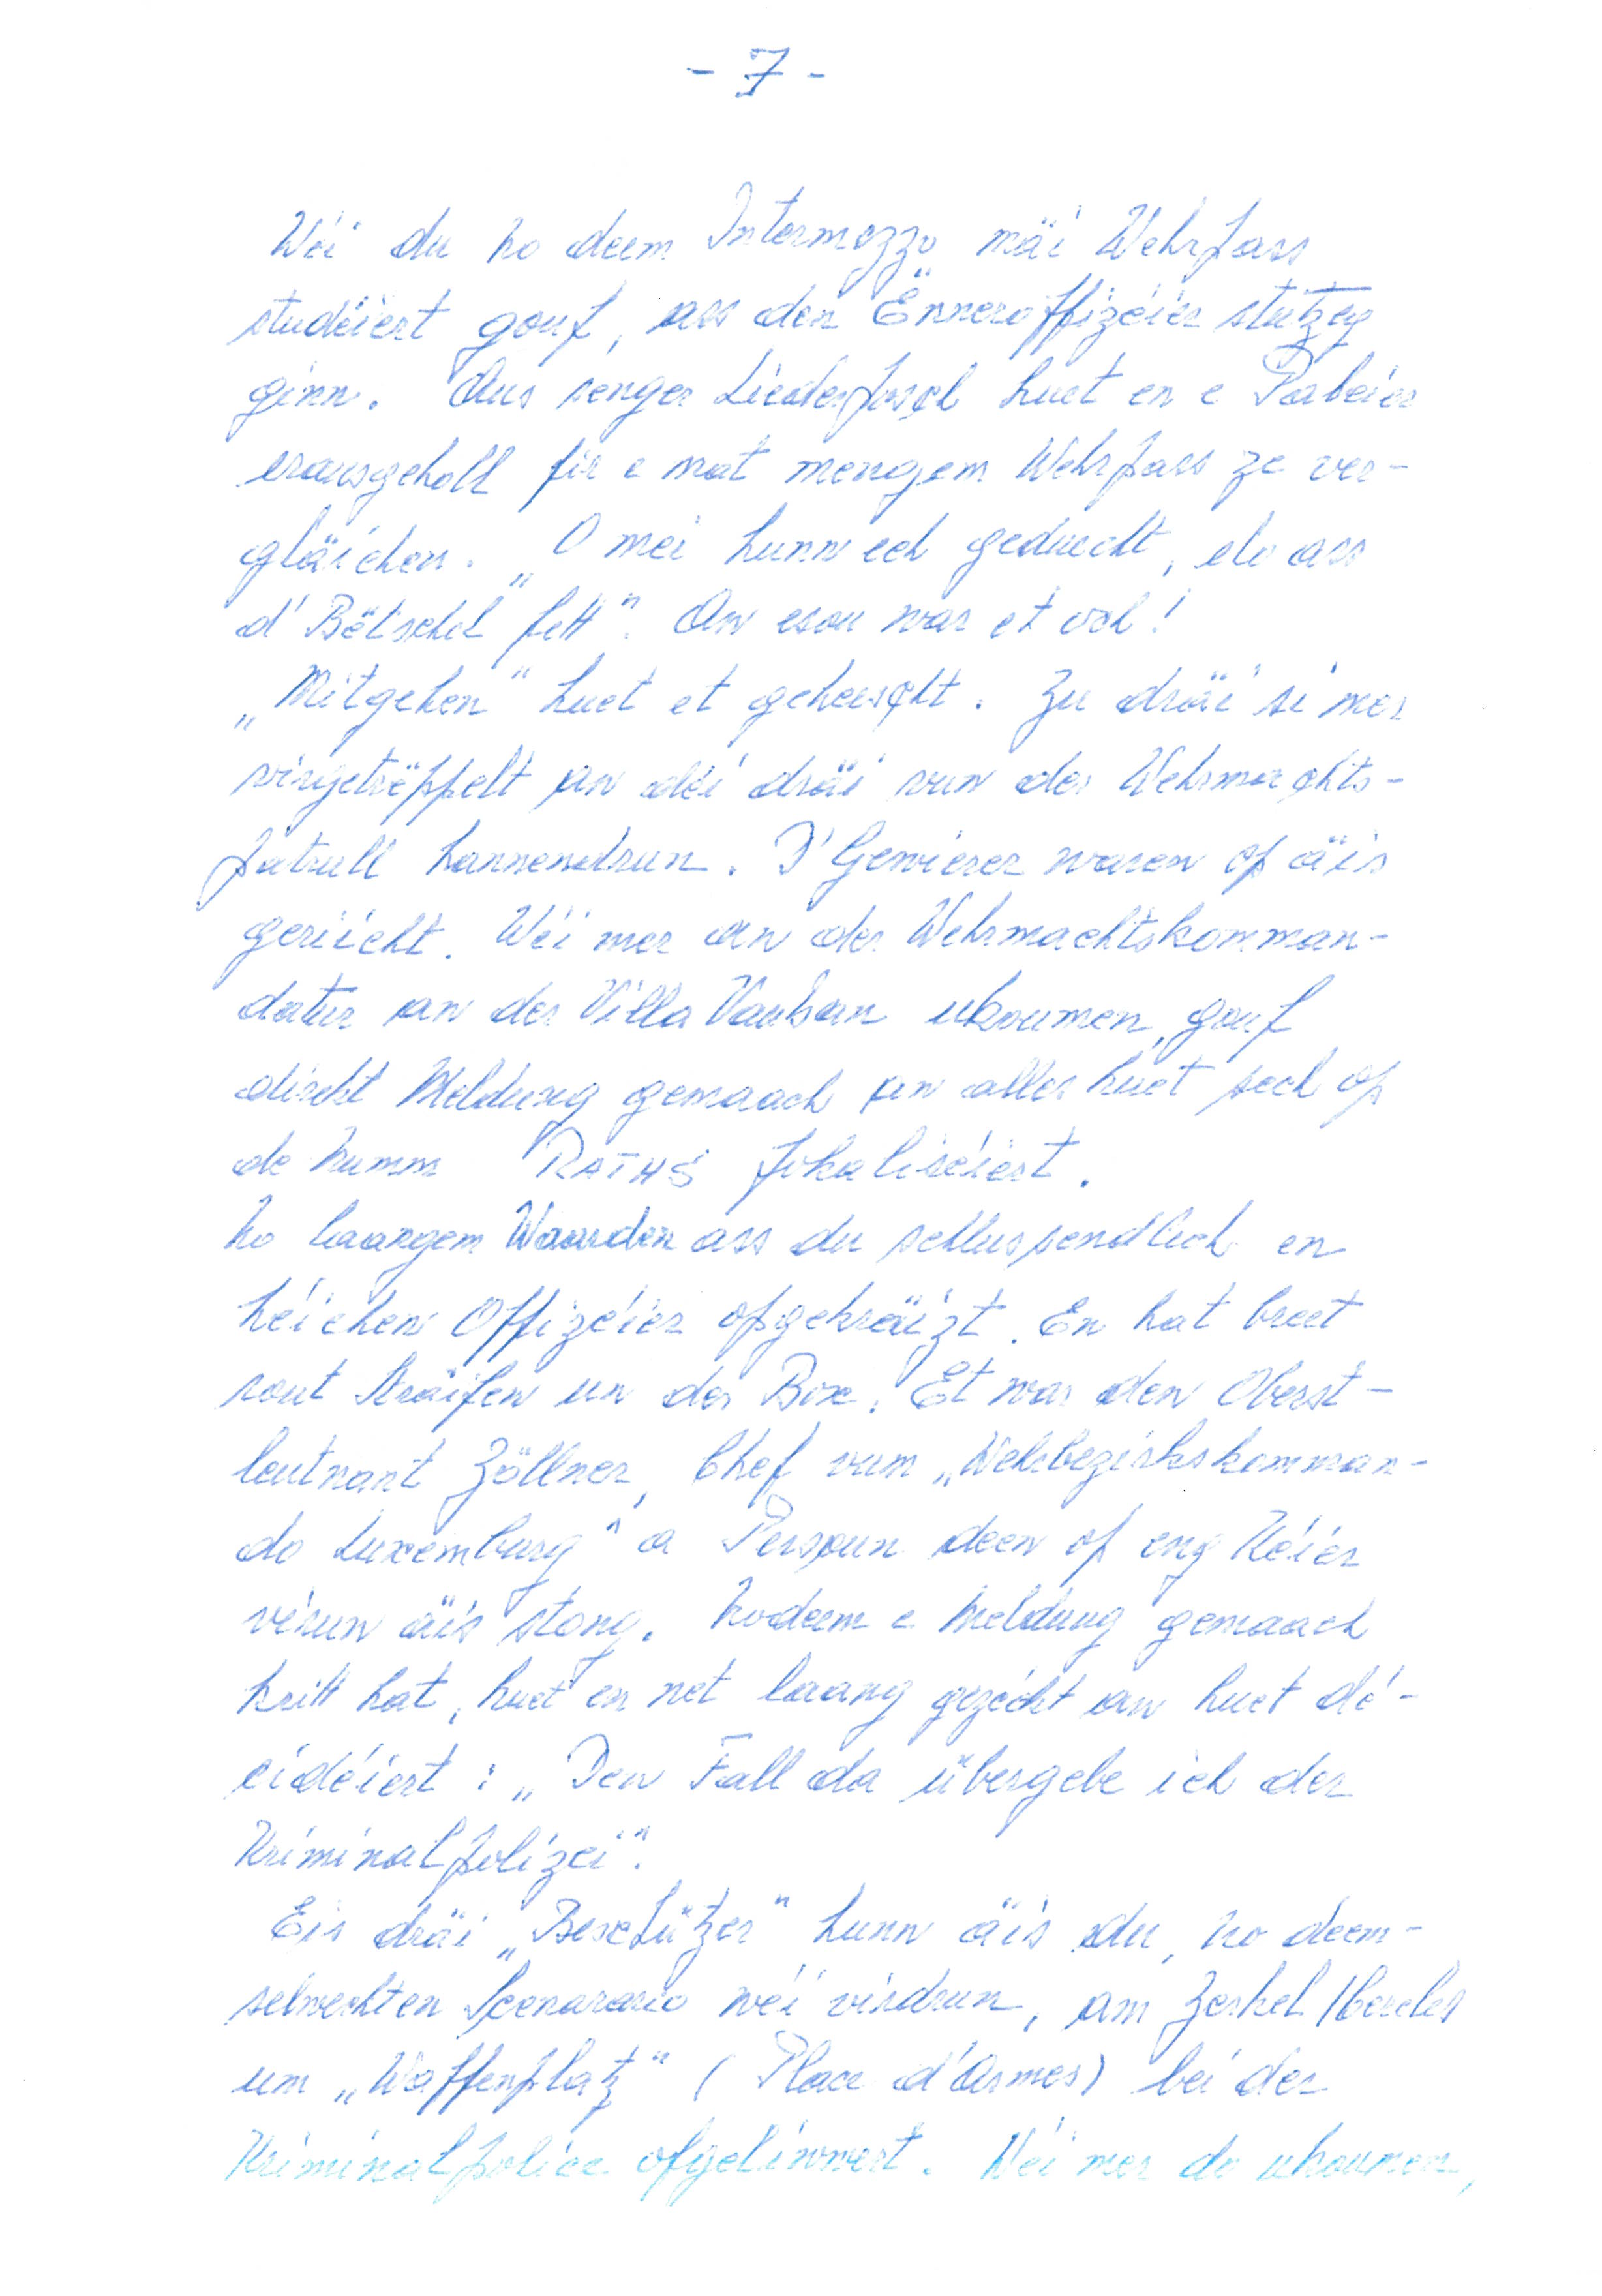 - 7 -
Wéi du no deem Intermezzo mäi Wehrpass
studéiert gouf, ass den Ënneroffizéier stutzeg
ginn. Aus senger Liederposch huet en e Pabeier
erausgeholl fir e mat mengem Wehrpass ze ver-
gläichen. „O mei hunn ech geduecht, elo ass
d'Bëtschel fett". An esou war et och!
„Mitgehen" huet et geheescht. Zu dräi si mer
virgetrëppelt an déi dräi vun der Wehrmachts-
patrull hannendrun. D'Gewierer waren op äis
geriicht. Wéi mer an der Wehrmachtskomman-
datur an der Villa Vauban ukoumen, gouf
direkt Meldung gemaach an alles huet sech op
de Numm RATHS fokaliséiert.
No laangem Waarden ass du schlussendlech en
héichen Offizéier opgekräizt. En hat breet
rout Sträifen un der Box. Et war den Oberst-
leutnant Zöllner, Chef vum „Wehrbezirkskomman-
do Luxemburg" a Persoun deen op eng Kéier
virun äis stong. Nodeem e Meldung gemaach
kritt hat, huet en net laang gezéckt an huet dé-
cidéiert : „Den Fall da übergebe ich der
Kriminalpolizei".
Eis dräi „Beschützer" hunn äis du, no deem-
selwechten Scenarario wéi virdrun, am Zerkel / Cercle
um „Waffenplatz" ( Place d'Armes) bei der
Kriminalpolice ofgeliwwert. Wéi mer do ukoumen,